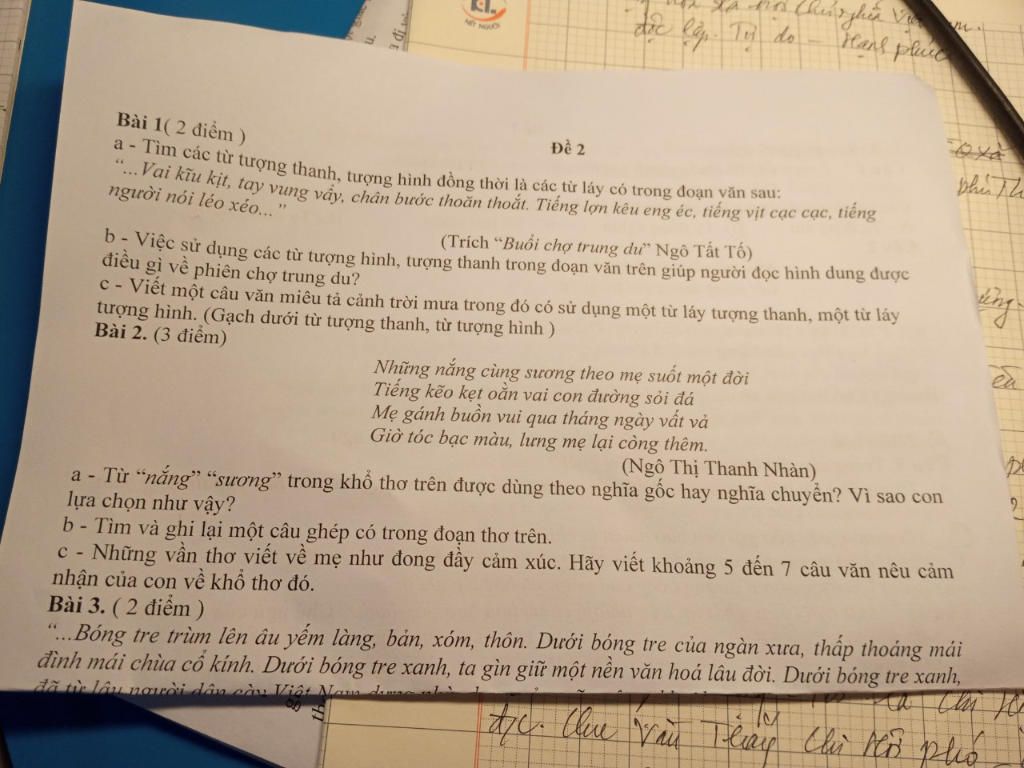 NÉT NGƯỜI
độc lập. Tự do - Hạnh phúc
Đề 2
Bài 1( 2 điểm )
a - Tìm các từ tượng thanh, tượng hình đồng thời là các từ láy có trong đoạn văn sau:
“...Vai kĩu kịt, tay vung vẩy, chân bước thoăn thoắt. Tiếng lợn kêu eng éc, tiếng vịt cạc cạc, tiếng
người nói léo xéo...”
(Trích “Buổi chợ trung du” Ngô Tất Tố)
b - Việc sử dụng các từ tượng hình, tượng thanh trong đoạn văn trên giúp người đọc hình dung được
điều gì về phiên chợ trung du?
c - Viết một câu văn miêu tả cảnh trời mưa trong đó có sử dụng một từ láy tượng thanh, một từ láy
tượng hình. (Gạch dưới từ tượng thanh, từ tượng hình )
Bài 2. (3 điểm)
Những nắng cùng sương theo mẹ suốt một đời
Tiếng kẽo kẹt oằn vai con đường sỏi đá
Mẹ gánh buồn vui qua tháng ngày vất vả
Giờ tóc bạc màu, lưng mẹ lại còng thêm.
(Ngô Thị Thanh Nhàn)
a - Từ “nắng” “sương” trong khổ thơ trên được dùng theo nghĩa gốc hay nghĩa chuyển? Vì sao con
lựa chọn như vậy?
b - Tìm và ghi lại một câu ghép có trong đoạn thơ trên.
c - Những vần thơ viết về mẹ như đong đầy cảm xúc. Hãy viết khoảng 5 đến 7 câu văn nêu cảm
nhận của con về khổ thơ đó.
Bài 3. ( 2 điểm )
“...Bóng tre trùm lên âu yếm làng, bản, xóm, thôn. Dưới bóng tre của ngàn xưa, thấp thoáng mái
đình mái chùa cổ kính. Dưới bóng tre xanh, ta gìn giữ một nền văn hoá lâu đời. Dưới bóng tre xanh,
đã từ lâu người dân cày Việt Nam